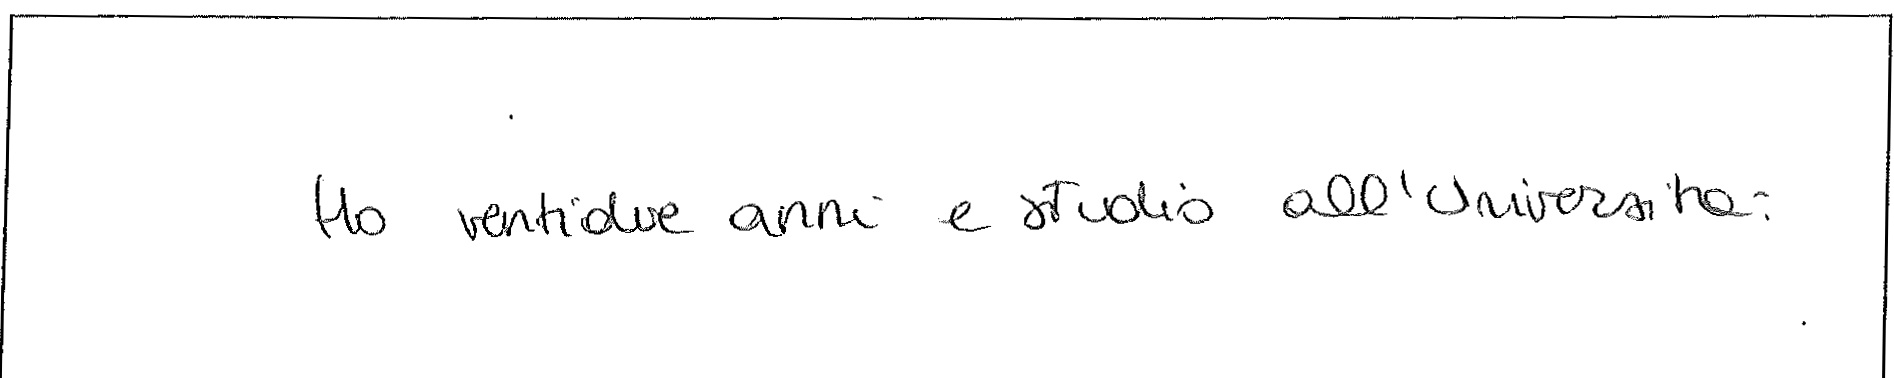 Ho ventidue anni e studio all'Università.